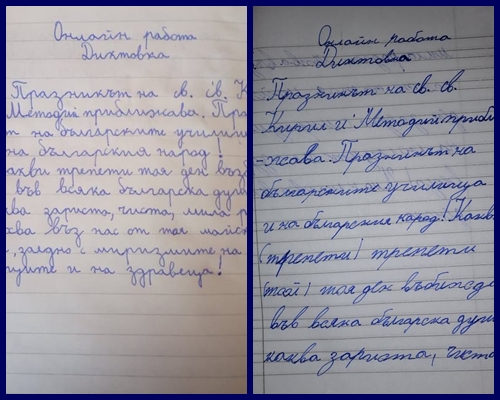 Онлайн работа
Диктовка
Празникът на св. св. К
Методий приближава. Пра
т на българските училищ
на българския народ!
акви трепети тоя ден възб
във всяка българска душ
ква зариста, чиста, мила р
хва въз нас от там майск
, заедно с миризмите на
цците и на здравеца!
Онлайн работа
Диктовка
Празникът на св. св.
Кирил и Методий прибли
-жава. Празникът на
българските училища
и на българския народ! Какв
(трепети) трепети
(той) тоя ден възбужда
във всяка българска душ
каква зариста, чиста